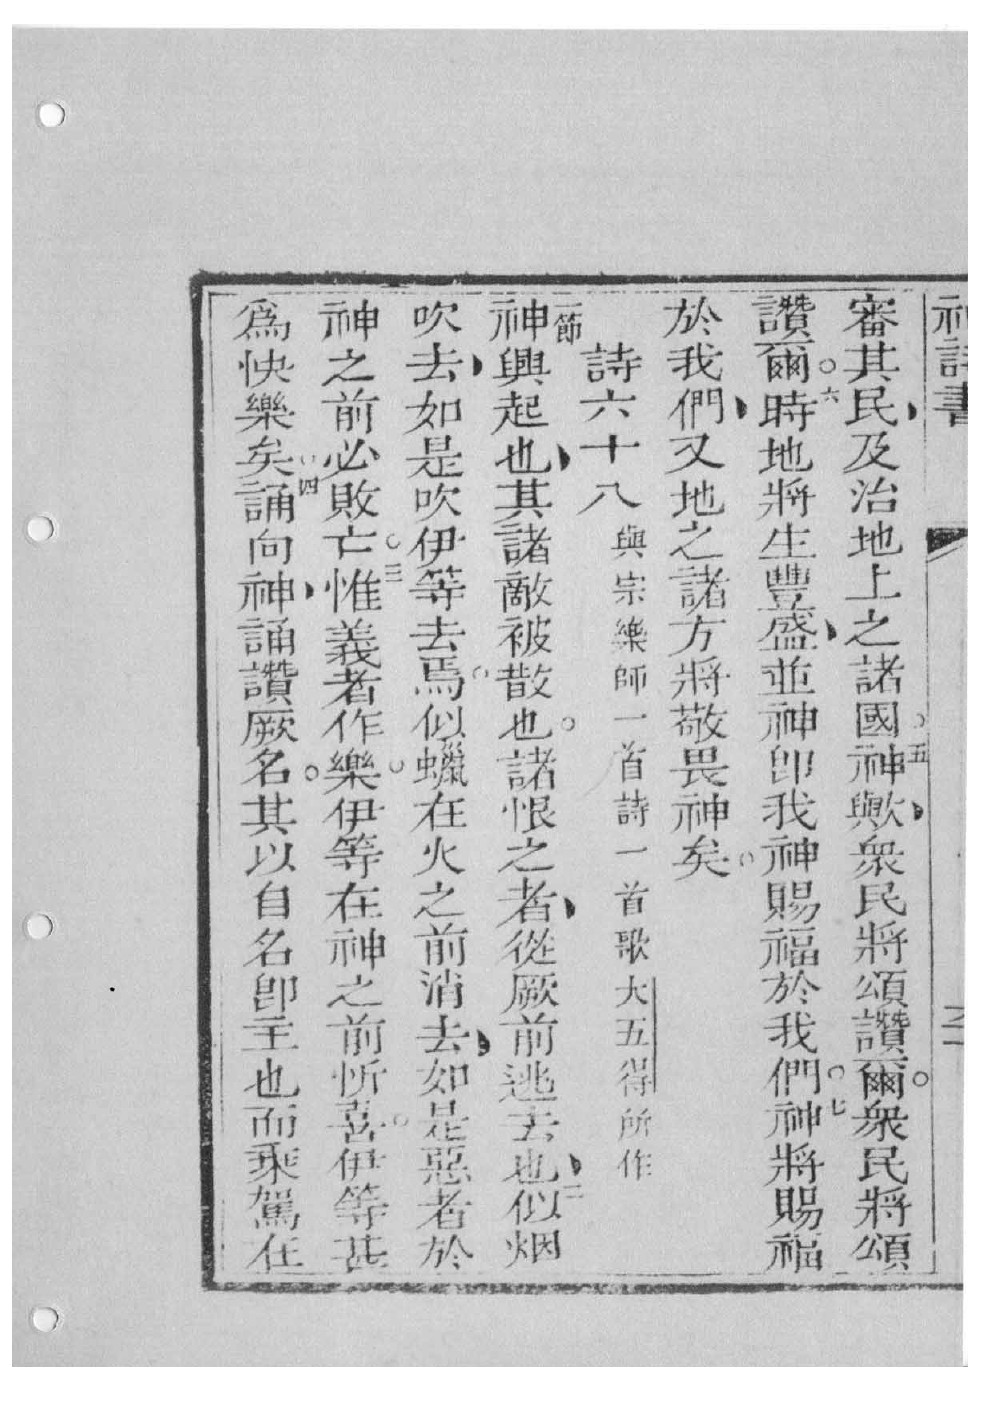 神詩書
審其民及治地上之諸國○五神歟衆民將頌讚爾○衆民將頌
讚爾○六時地將生豐盛並神卽我神賜福於我們○七神將賜福
於我們又地之諸方將敬畏神矣○
詩六十八 與宗樂師一首詩一首歌大五得所作
一節神興起也其諸敵被散也○諸恨之者從厥前逃去也二似烟
吹去如是吹伊等去焉○似蠟在火之前消去如是惡者於
神之前必敗亡○三惟義者作樂○伊等在神之前忻喜○伊等甚
爲快樂矣○四誦向神誦讚厥名○其以自名卽主也而乘駕在